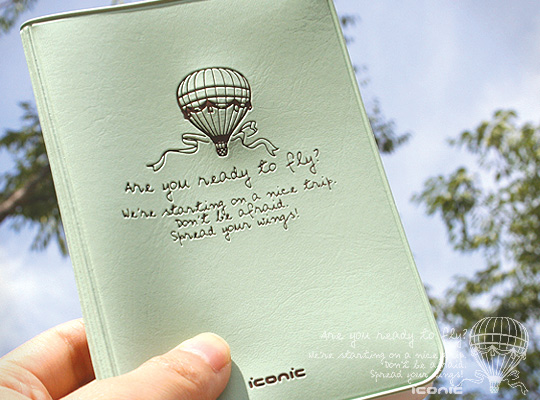 Are you ready to fly?
We're starting on a nice trip.
Don't be afraid.
Spread your wings!
iconic
Are you ready to fly?
We're starting on a nice trip.
Don't be afraid.
Spread your wings!
iconic